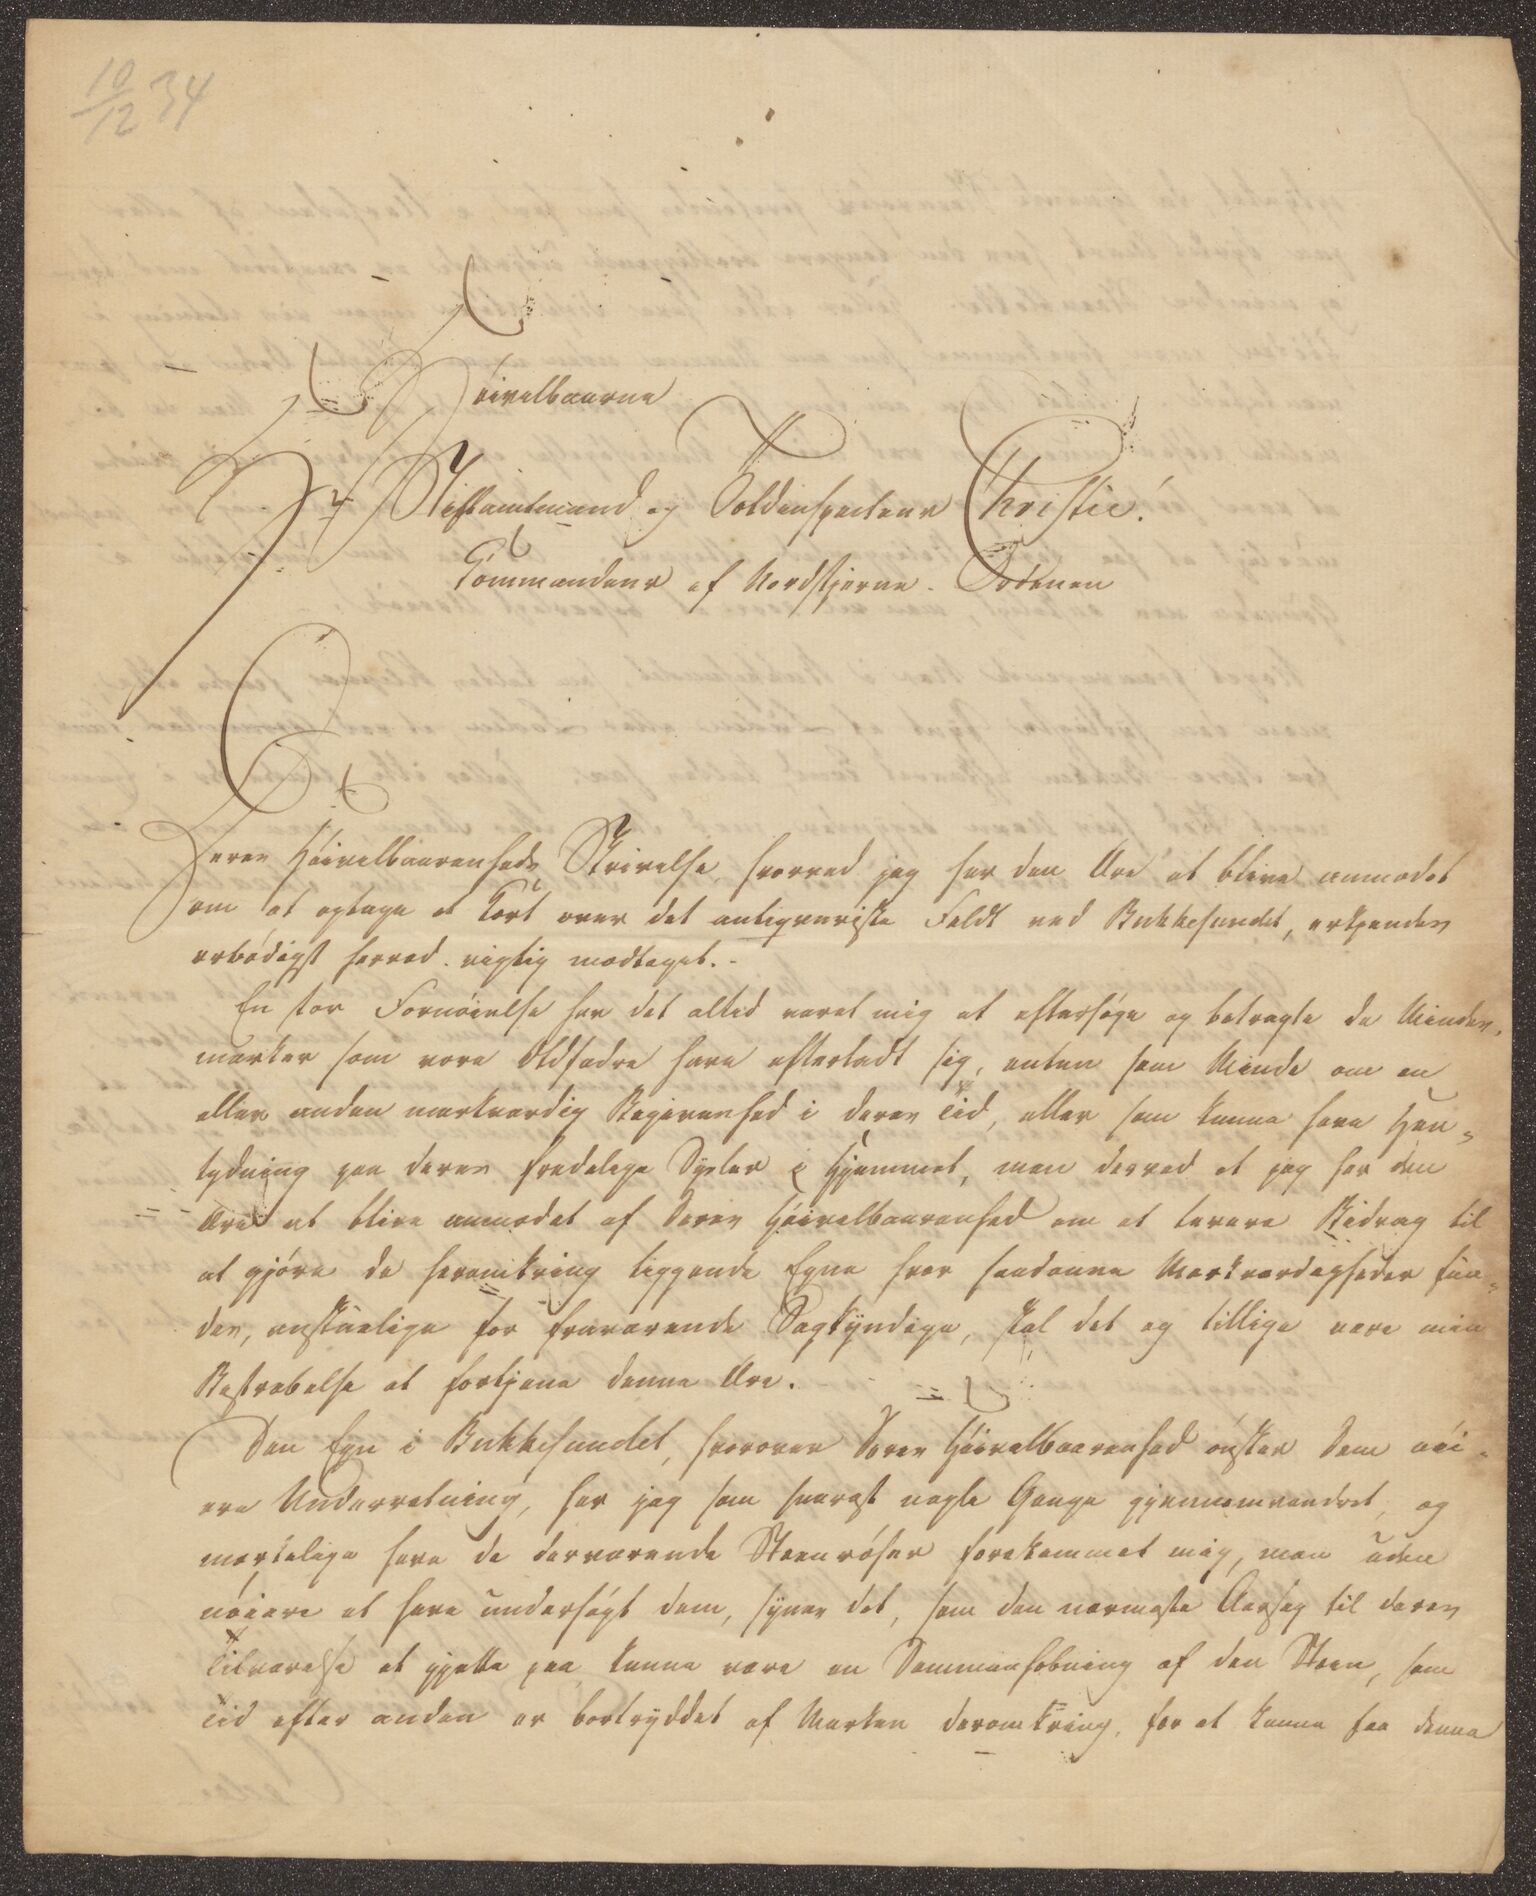 10/12 34
Høivelbaarne
Hr Stiftamtmand og Toldinspecteur Christie!
Commandeur af Nordstjerne-Ordenen
Deres Høivelbaarenheds Skrivelse, hvorved jeg har den Ære at blive anmodet
om at optage et Kort over det antiqvariske Feldt ved Bukkesundet, erkjendes
erbødigst herved rigtig modtaget.-
En stor Fornøielse har det altid været mig at eftersøge og betragte de Mindes-
mærker som vore Oldfædre have efterladt sig, enten som Minde om en
eller anden mærkværdig Begivenhed i deres Tid, eller som kunne have Hen-
tydning paa deres fredelige Sysler i Hjemmet, men derved at jeg har den
Ære at blive anmodet af Deres Høivelbaarenhed om at levere Bidrag til
at gjøre de heromkring liggende Egne hvor saadanne Mærkværdigheder fin-
des, anskuelige for fraværende Sagkyndige, skal det og tillige være min
Bestræbelse at fortjene denne Ære.
Den Egn i Bukkesundet, hvorover Deres Høivelbaarenhed ønsker Dem nøi-
ere Underretning, har jeg som snarest nogle Gange gjennemvandret, og
mærkelige have de derværende Steenrøser forekommet mig, men uden
nøiere at have undersøgt dem, synes det, som den nærmeste Aarsag til deres
Tilværelse at gjette paa kunne være en Sammenhobning af den Steen, som
Tid efter anden er bortryddet af Marken deromkring, for at kunne faa denne